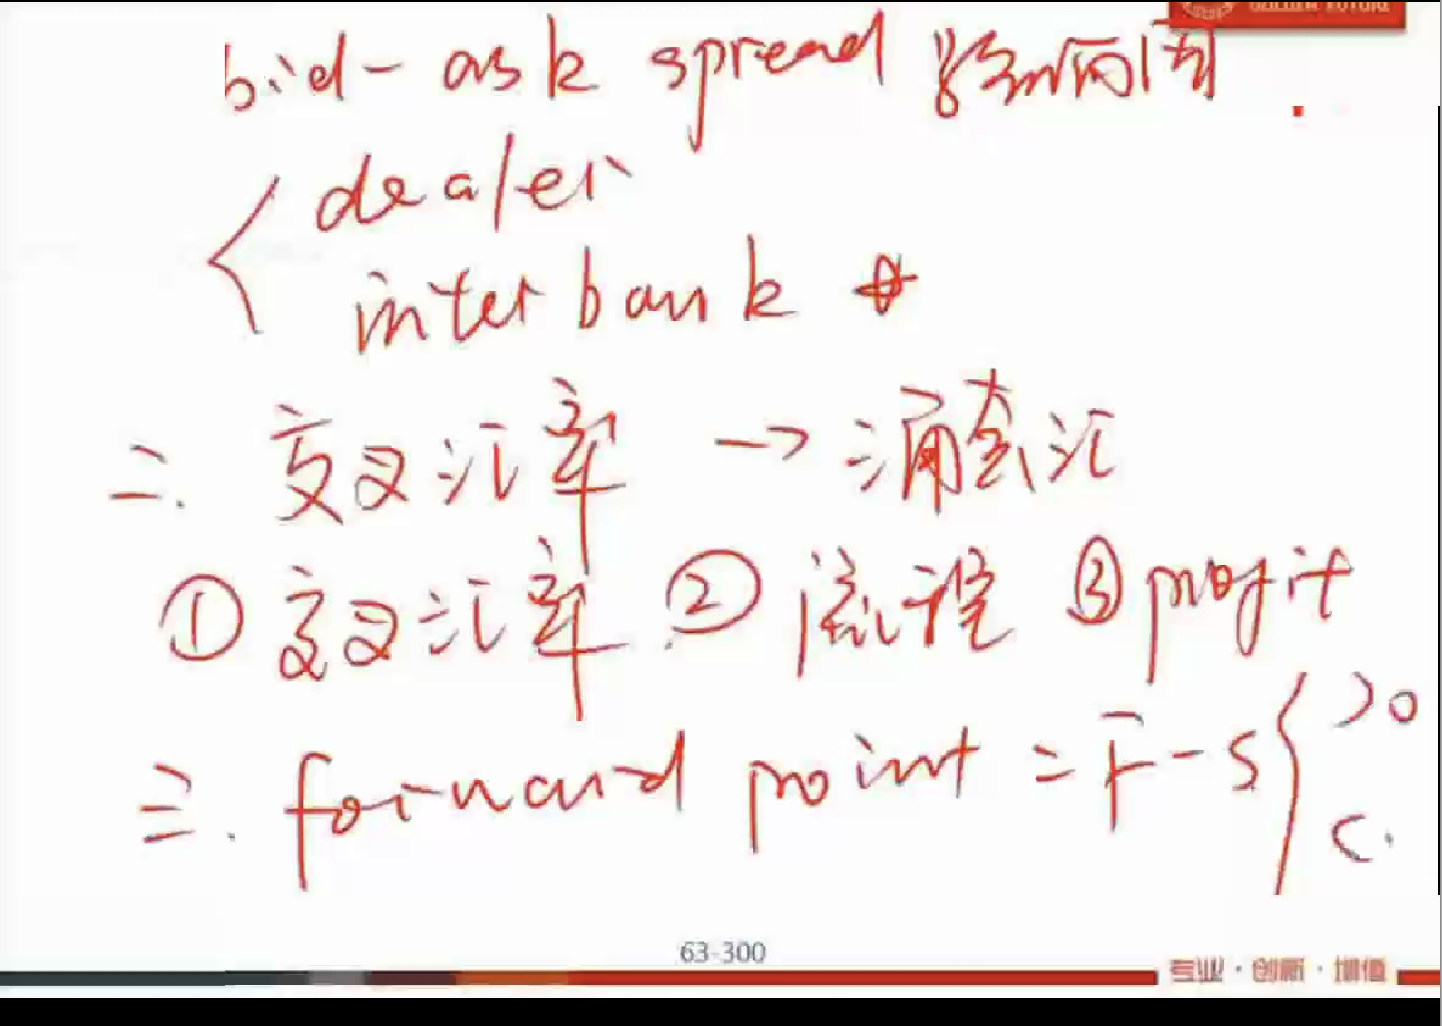 GOLDEN FUTURE
bid-ask spread 影响两个方面
dealer
interbank *
二. 交叉汇率 → 三角套汇
① 交叉汇率 ② 流程 ③ profit
三. forward point = F - S { >0
<.
63-300
专业 · 创新 · 增值